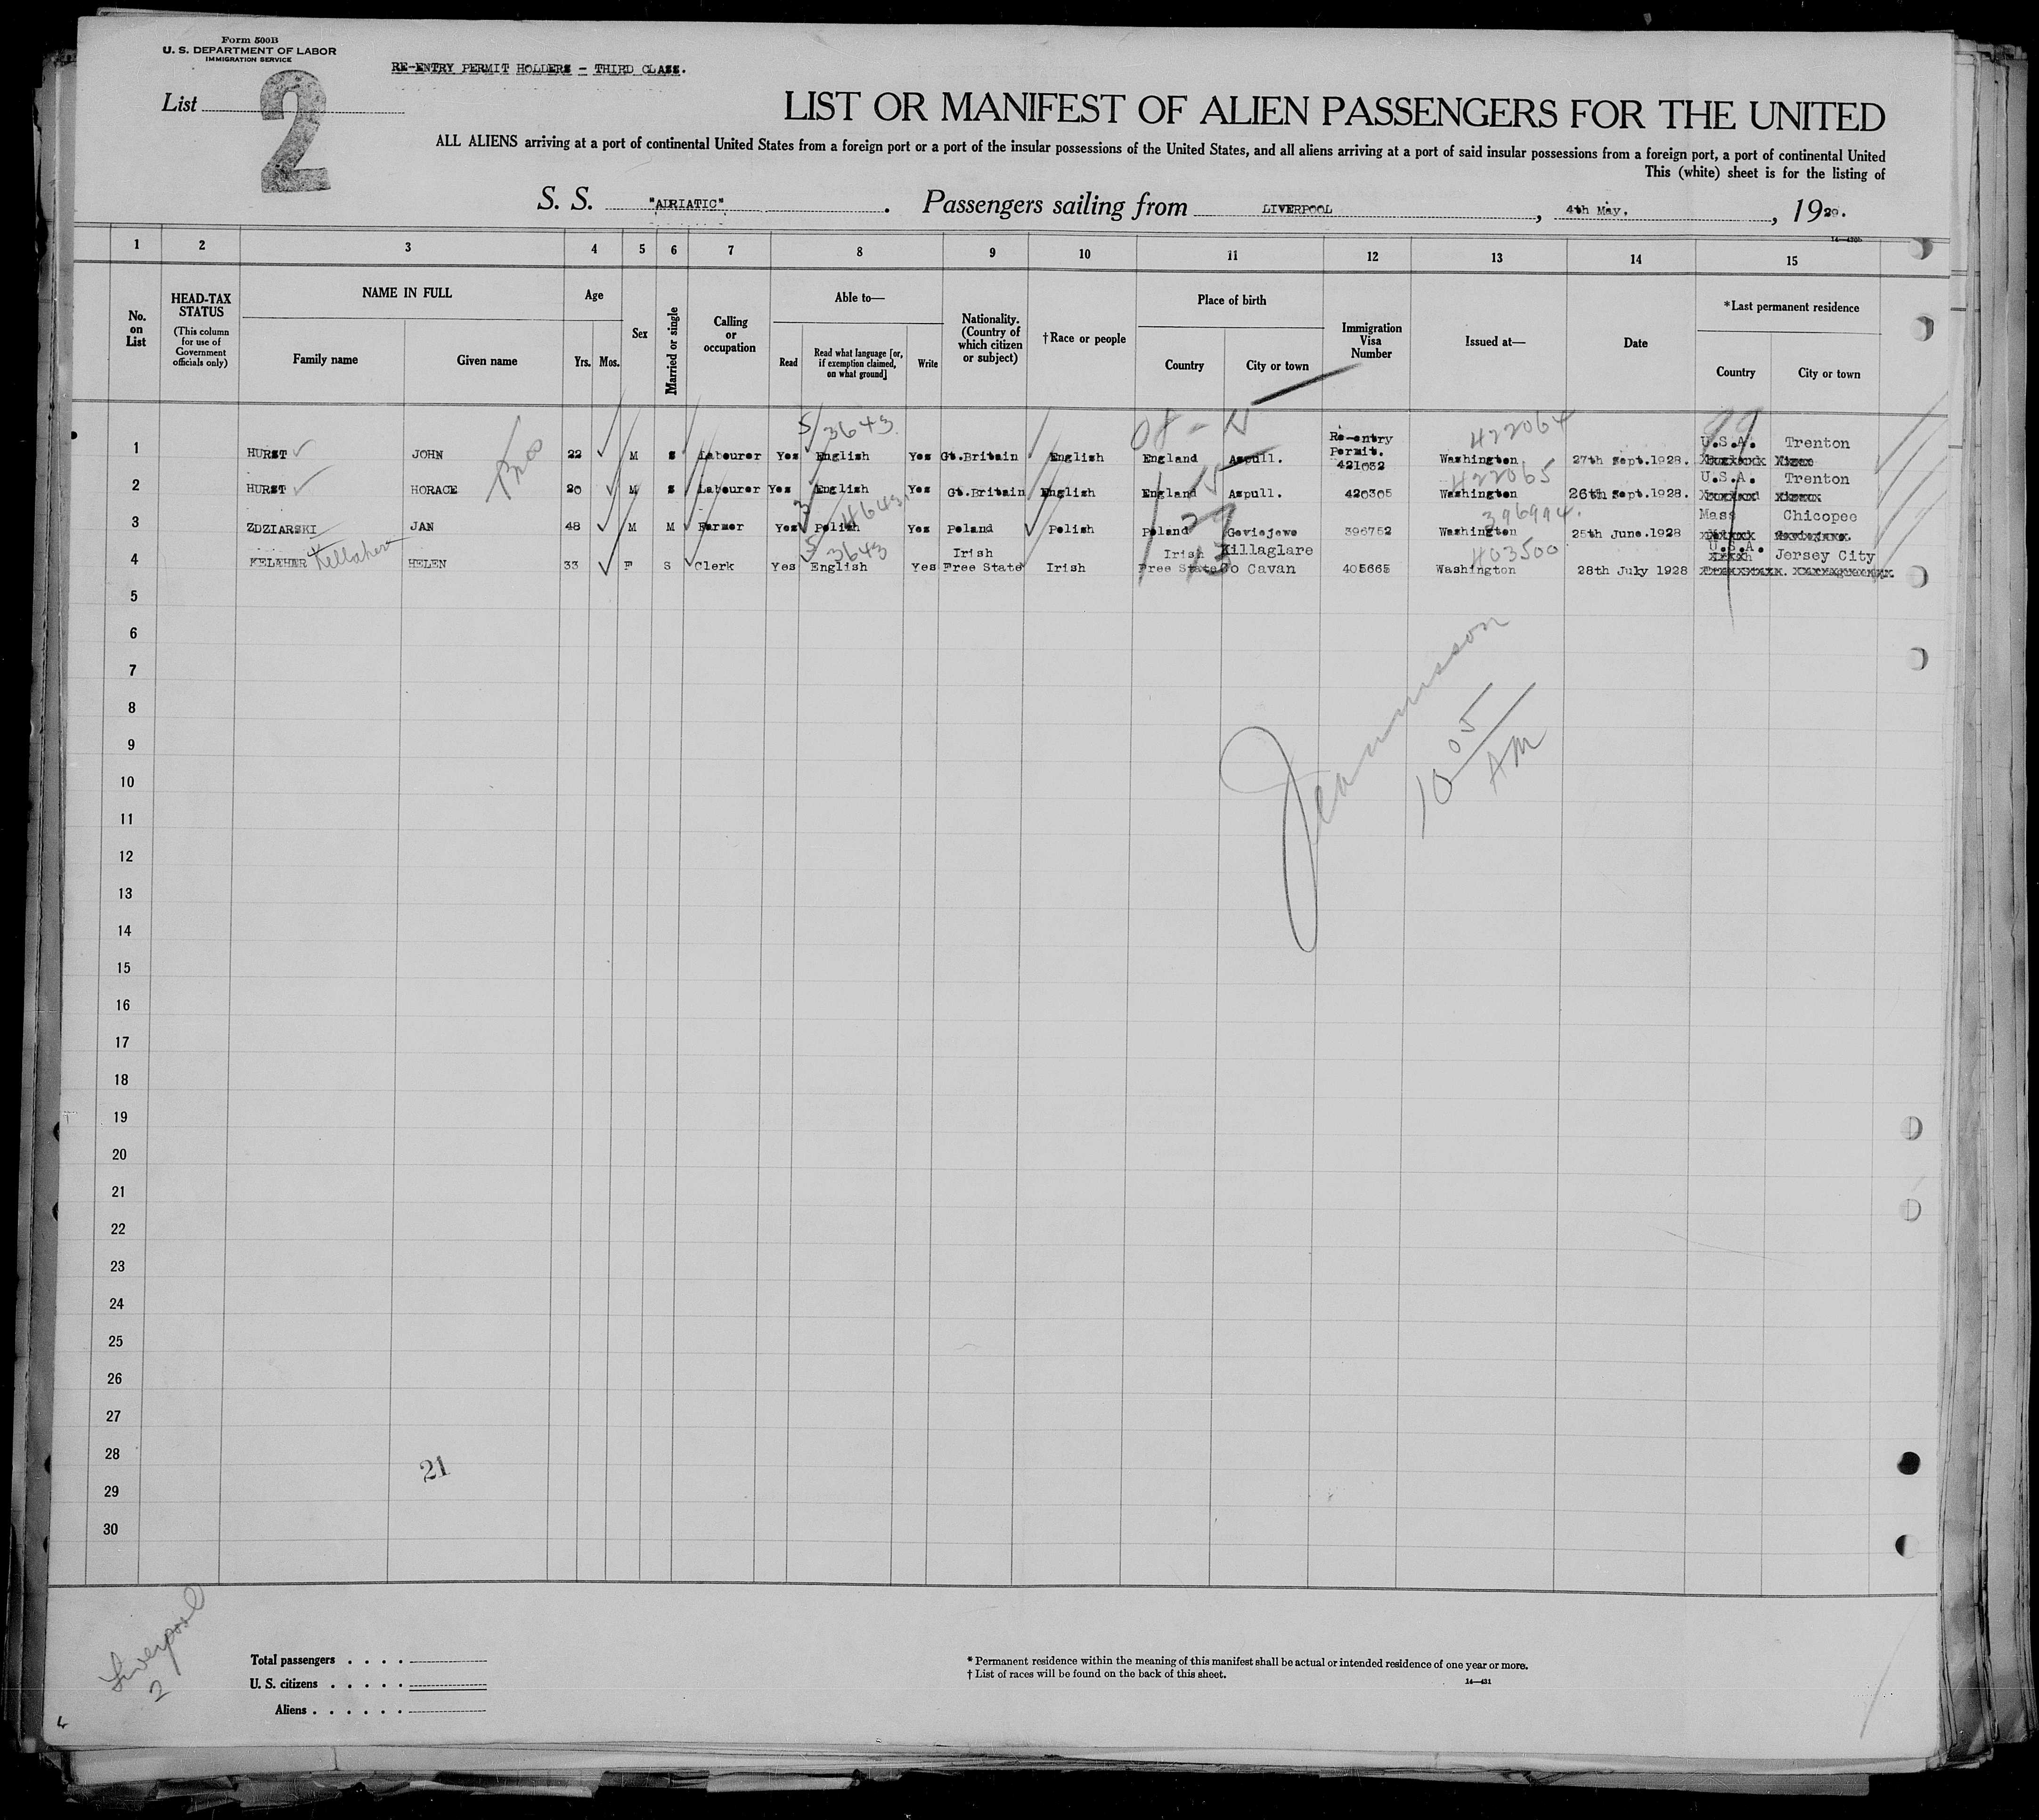 Form 500B
U. S. DEPARTMENT OF LABOR
IMMIGRATION SERVICE
RE-ENTRY PERMIT HOLDERS - THIRD CLASS.
List 2
LIST OR MANIFEST OF ALIEN PASSENGERS FOR THE UNITED
ALL ALIENS arriving at a port of continental United States from a foreign port or a port of the insular possessions of the United States, and all aliens arriving at a port of said insular possessions from a foreign port, a port of continental United
This (white) sheet is for the listing of
S. S. "ADRIATIC". Passengers sailing from LIVERPOOL, 4th May., 1929.
14—430b
1 2 3 4 5 6 7 8 9 10 11 12 13 14 15
No. on List
HEAD-TAX STATUS
(This column for use of Government officials only)
NAME IN FULL
Family name Given name
Age
Yrs. Mos.
Sex
Married or single
Calling or occupation
Able to—
Read Read what language [or, if exemption claimed, on what ground] Write
Nationality. (Country of which citizen or subject)
†Race or people
Place of birth
Country City or town
Immigration Visa Number
Issued at—
Date
*Last permanent residence
Country City or town
5/3643 422064
Re-entry Permit.
1 HURST JOHN 22 M S Labourer Yes English Yes Gt.Britain English England Aspull. 421032 Washington 27th Sept.1928. U.S.A. Trenton
422065
2 HURST HORACE 20 M S Labourer Yes English Yes Gt.Britain English England Aspull. 420305 Washington 26th Sept.1928. U.S.A. Trenton
396994.
3 ZDZIARSKI JAN 48 M M Farmer Yes Polish Yes Poland Polish Poland Goviejewo 396752 Washington 25th June.1928 Mass Chicopee
5/3643 403500
4 KELEHER Kellaher HELEN 33 F S Clerk Yes English Yes Irish Free State Irish Irish Free State Killaglare Co Cavan 405665 Washington 28th July 1928 U.S.A. Jersey City
5
6
7
8
9
10
11
12
13
14
15
16
17
18
19
20
21
22
23
24
25
26
27
28
29
30
10 05 AM
21
Liverpool
2
Total passengers
U. S. citizens
Aliens
* Permanent residence within the meaning of this manifest shall be actual or intended residence of one year or more.
† List of races will be found on the back of this sheet.
14—431